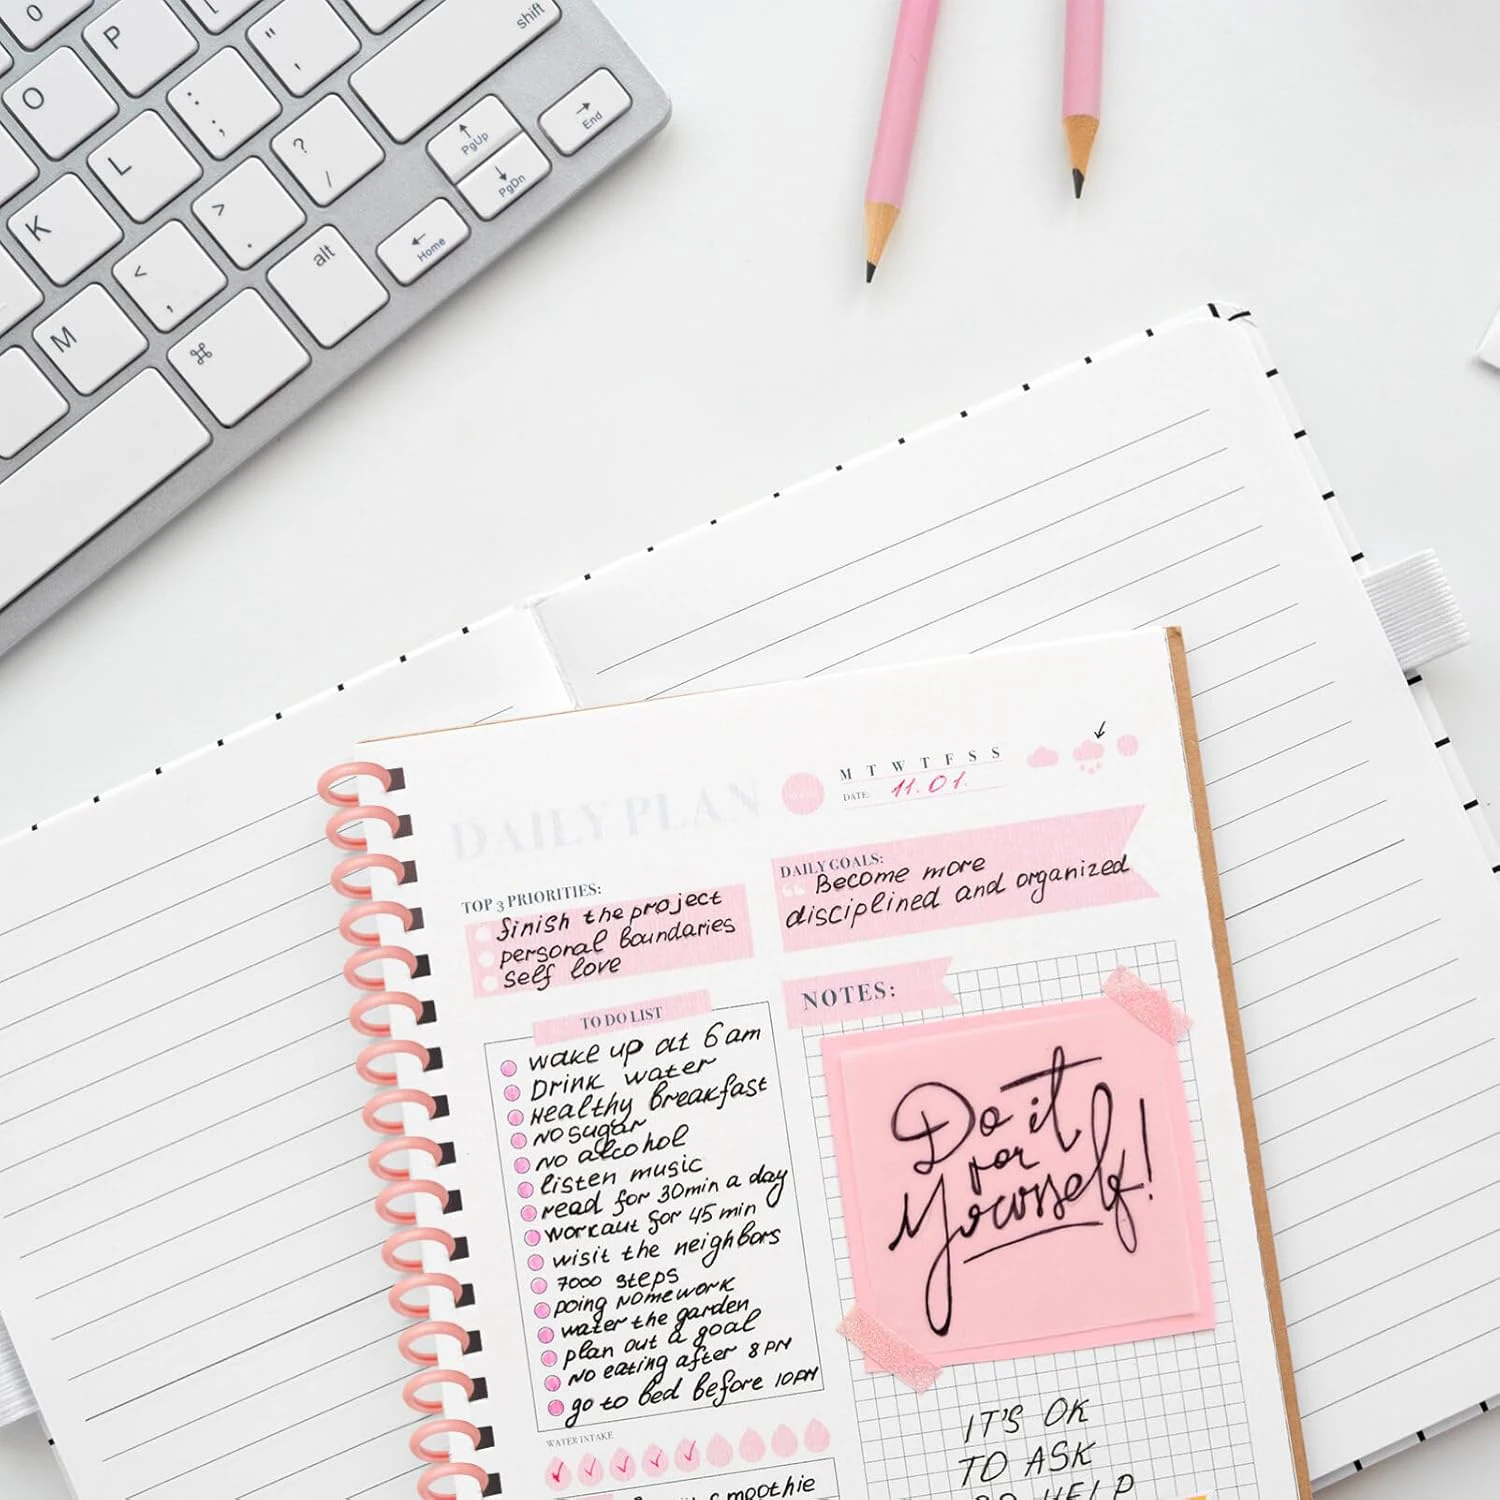 shift
P
"
'
O
:
;
L
?
/
PgUp
PgDn
End
K
>
.
alt
Home
<
,
M
⌘
DAILY PLAN
M T W T F S S
DATE: 11.01.
TOP 3 PRIORITIES:
finish the project
personal boundaries
self love
DAILY GOALS:
Become more
disciplined and organized
TO DO LIST
wake up at 6 am
Drink water
Healthy breakfast
NO sugar
NO alcohol
listen music
read for 30min a day
workaut for 45 min
wisit the neighbors
7000 steps
Doing Homework
water the garden
plan out a goal
NO eating after 8 PM
go to bed before 10PM
WATER INTAKE
smoothie
NOTES:
Do it
for
Yourself!
IT'S OK
TO ASK
HELP